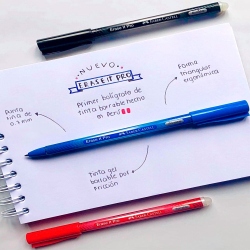 NUEVO
ERASE IT PRO
Primer bolígrafo de
tinta borrable hecho
en Perú
Punta
fina de
Forma
triangular
ergonómica
Tinta gel
borrable por
fricción
Erase It Pro
Erase It Pro
Erase It Pro